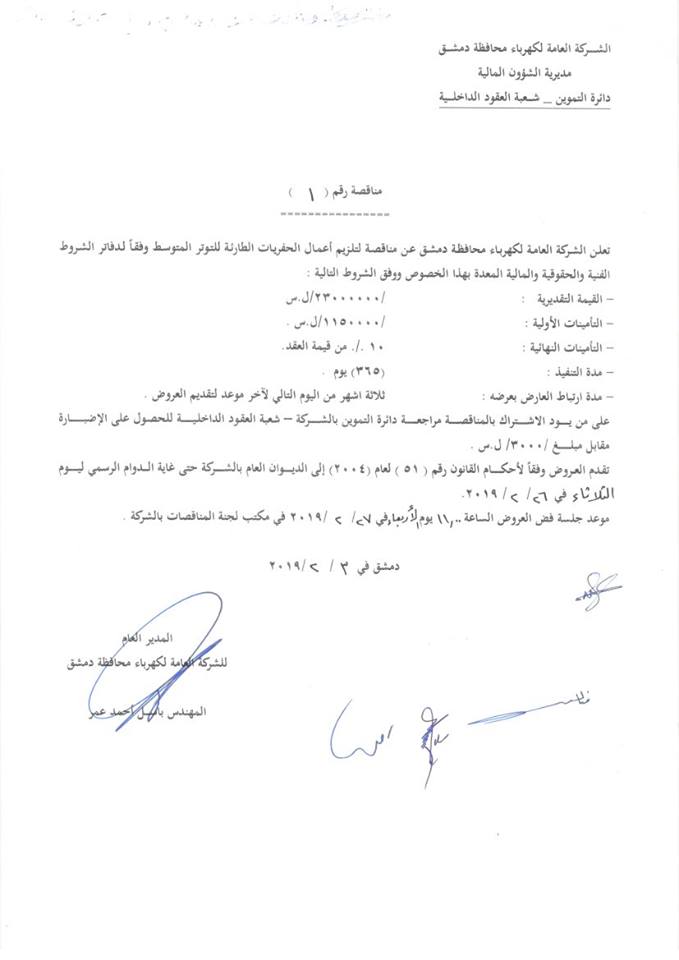 الشركة العامة لكهرباء محافظة دمشق
مديرية الشؤون المالية
دائرة التموين _ شعبة العقود الداخلية
مناقصة رقم ( ١ )
----------------
تعلن الشركة العامة لكهرباء محافظة دمشق عن مناقصة لتلزيم أعمال الحفريات الطارئة للتوتر المتوسط وفقاً لدفاتر الشروط
الفنية والحقوقية والمالية المعدة بهذا الخصوص ووفق الشروط التالية :
– القيمة التقديرية : /٢٣٠٠٠٠٠٠/ل.س
– التأمينات الأولية : /١١٥٠٠٠٠/ل.س .
– التأمينات النهائية : ١٠ ./. من قيمة العقد.
– مدة التنفيذ : (٣٦٥) يوم .
– مدة ارتباط العارض بعرضه : ثلاثة اشهر من اليوم التالي لآخر موعد لتقديم العروض .
على من يود الاشتراك بالمناقصة مراجعة دائرة التموين بالشركة – شعبة العقود الداخلية للحصول على الإضبارة
مقابل مبلغ /٣٠٠٠/ ل.س .
تقدم العروض وفقاً لأحكام القانون رقم ( ٥١ ) لعام (٢٠٠٤) إلى الديوان العام بالشركة حتى غاية الدوام الرسمي ليوم
الثلاثاء في ٢٦/ ٢ / ٢٠١٩.
موعد جلسة فض العروض الساعة ١١,٠٠ يوم الأربعاء في ٢٧/ ٢ /٢٠١٩ في مكتب لجنة المناقصات بالشركة .
دمشق في ٣ / ٢ /٢٠١٩
المدير العام
للشركة العامة لكهرباء محافظة دمشق
المهندس باسل أحمد عمر